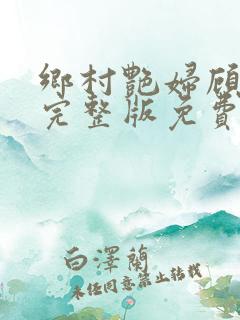 鄉村艷婦顧
完整版免費
白澤蘭
未经同意禁止转载